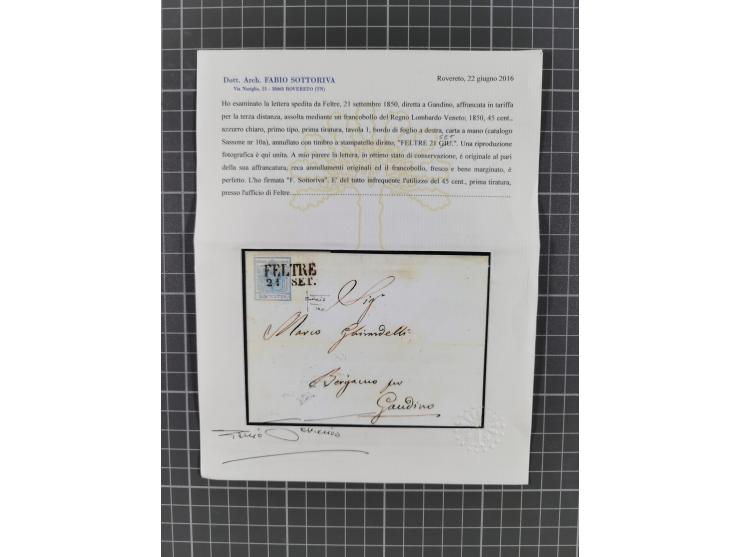 Dott. Arch. FABIO SOTTORIVA
Rovereto, 22 giugno 2016
Via Noriglio, 23 - 38068 ROVERETO (TN)
Ho esaminato la lettera spedita da Feltre, 21 settembre 1850, diretta a Gandino, affrancata in tariffa
per la terza distanza, assolta mediante un francobollo del Regno Lombardo Veneto; 1850, 45 cent.,
azzurro chiaro, primo tipo, prima tiratura, tavola 1, bordo di foglio a destra, carta a mano (catalogo
SET
Sassone nr 10a), annullato con timbro a stampatello diritto, "FELTRE 21 GIU.". Una riproduzione
fotografica è qui unita. A mio parere la lettera, in ottimo stato di conservazione, è originale al pari
della sua affrancatura, reca annullamenti originali ed il francobollo, fresco e bene marginato, è
perfetto. L'ho firmata "F. Sottoriva". E' del tutto infrequente l'utilizzo del 45 cent., prima tiratura,
presso l'ufficio di Feltre
FELTRE
21 SET.
Sigr
Marco Ghirardelli
Bergamo per
Gandino